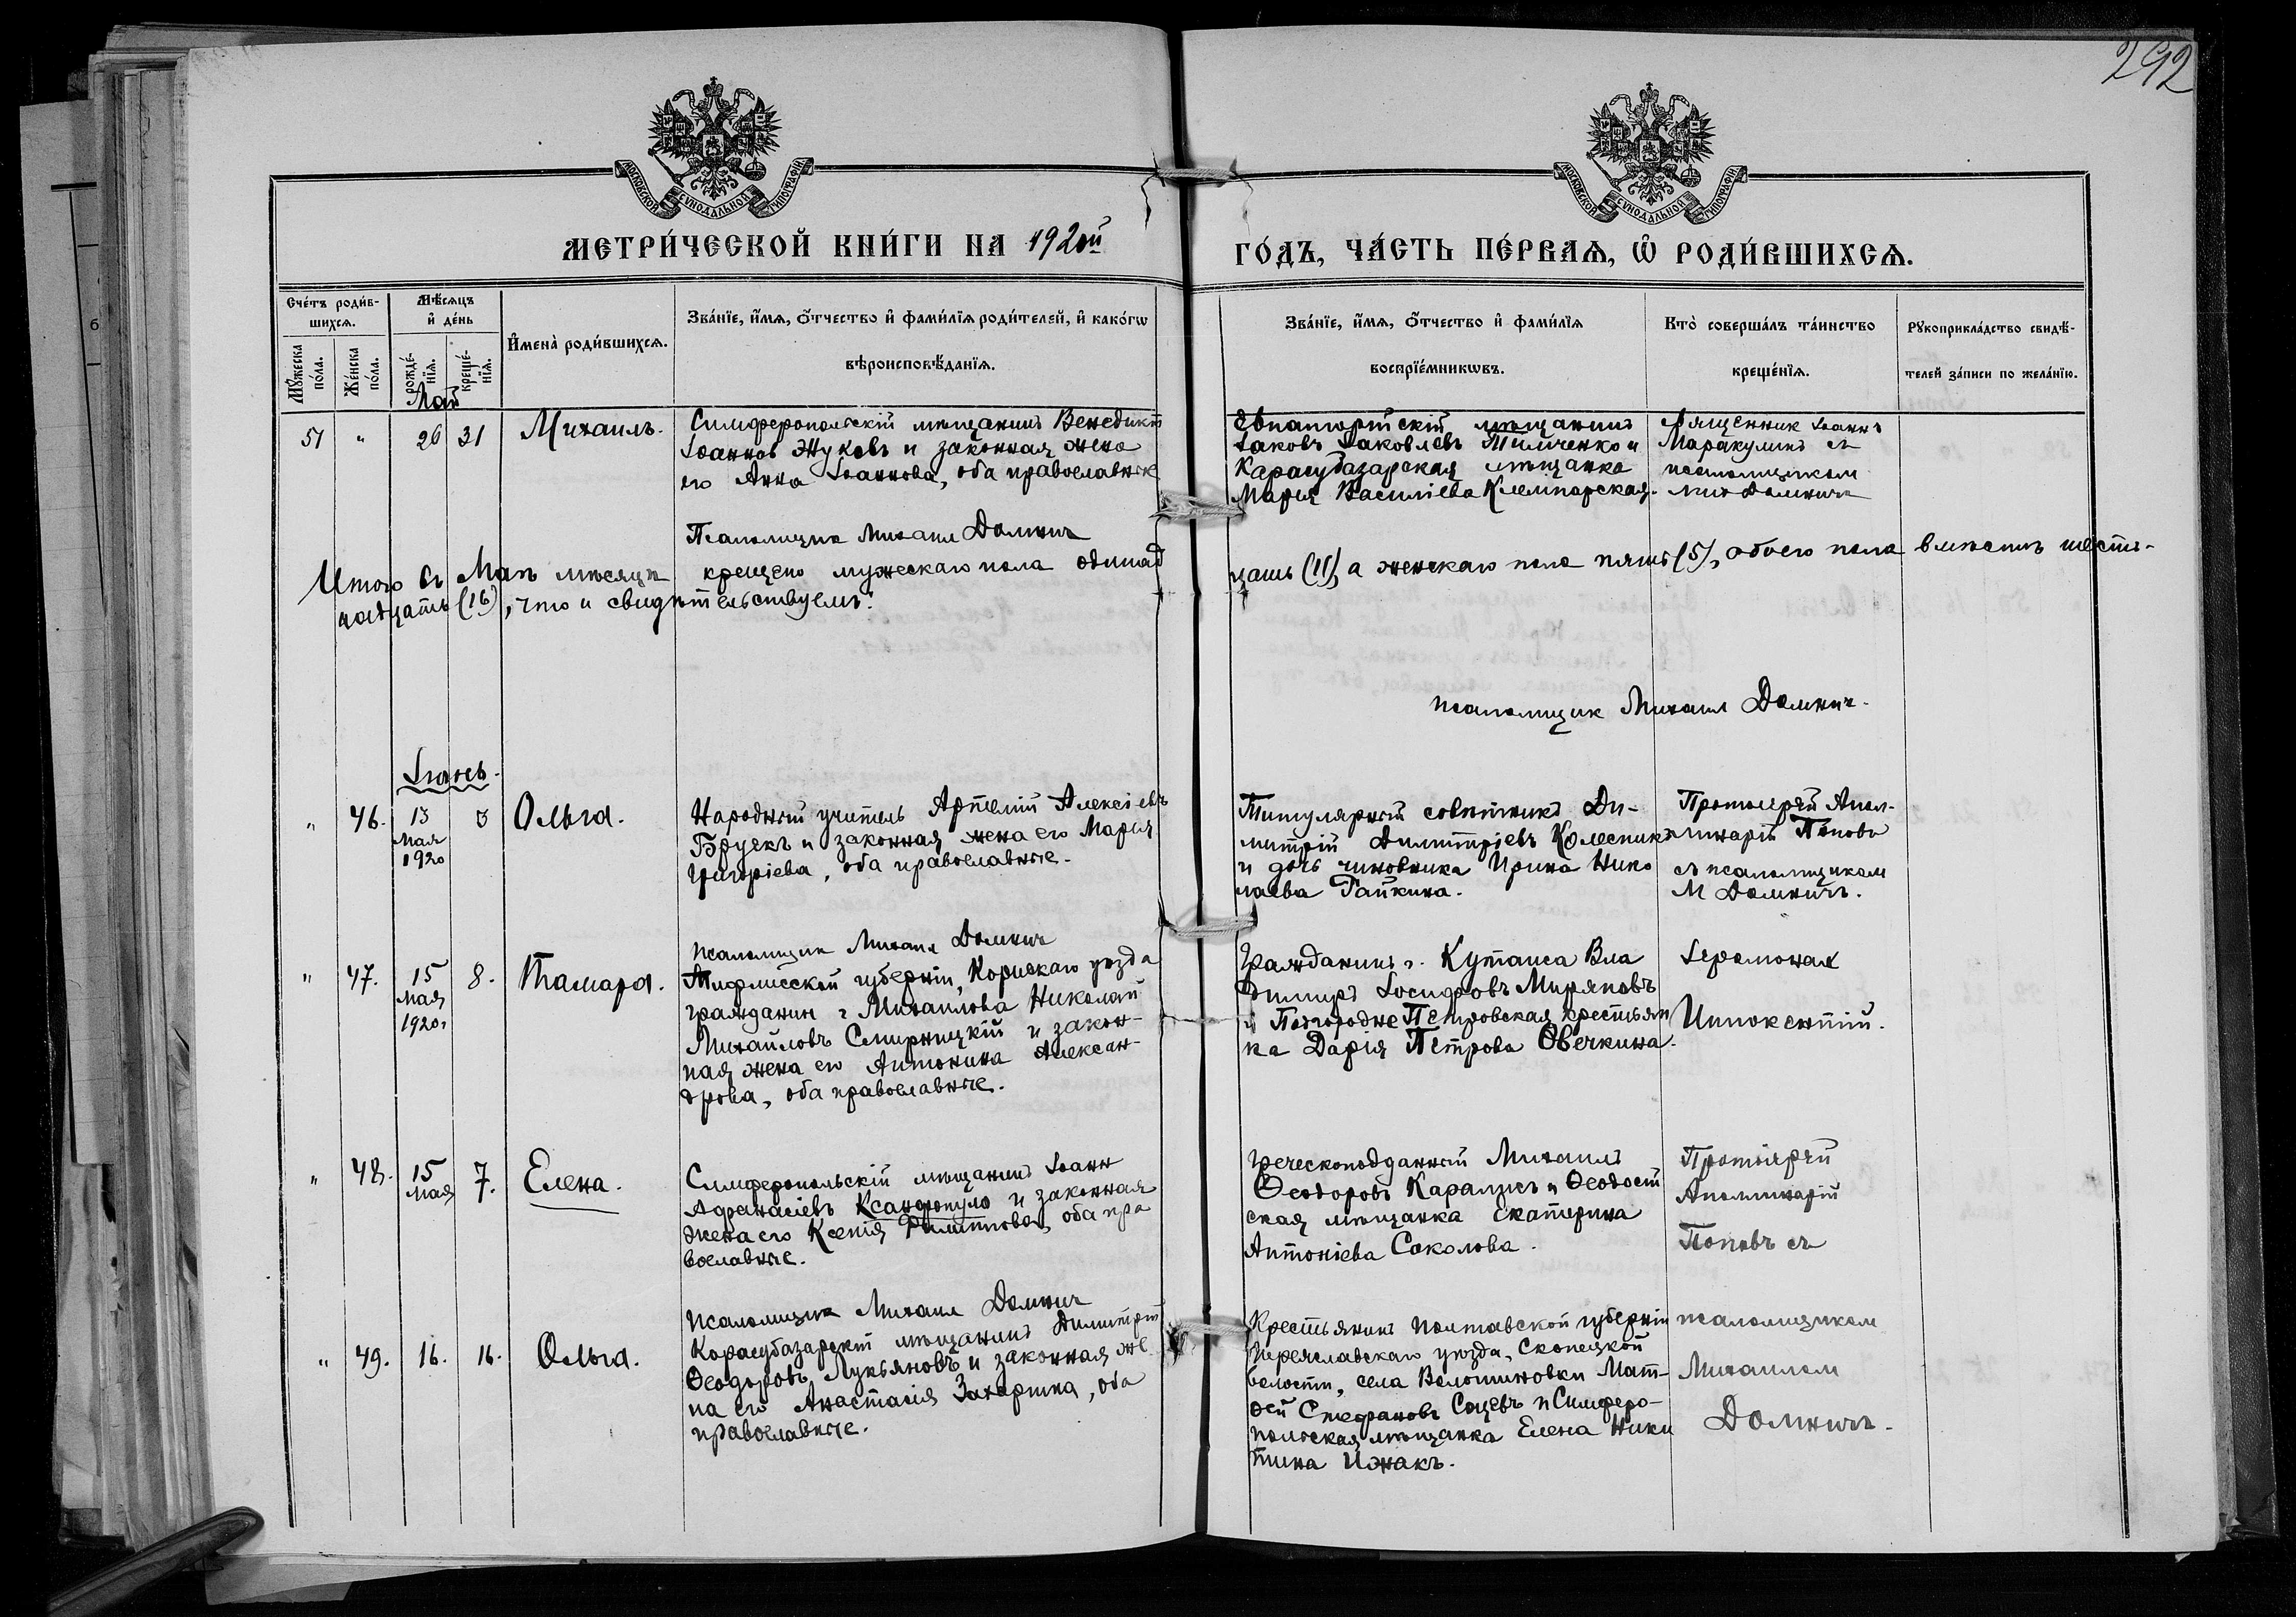 292
МОСКОВСКОЙ СѴНОДАЛЬНОЙ ТИПОГРАФІИ
МОСКОВСКОЙ СѴНОДАЛЬНОЙ ТИПОГРАФІИ
МЕТРИ́ЧЕСКОЙ КНИ́ГИ НА 1920й
ГО́ДЪ, ЧА́СТЬ ПЕ́РВАѦ, Ѽ РОДИ́ВШИХСѦ.
Сче́тъ роди́в-
шихсѧ.
Мꙋ́жеска по́ла.
Же́нска по́ла.
Мѣ́сѧцъ
и҆ де́нь
рожде́-
нїѧ.
креще́-
нїѧ.
И҆мена̀ роди́вшихсѧ.
Зва́нїе, и҆́мѧ, ѻ҆́тчество и҆ фами́лїѧ роди́телей, и҆ како́гѡ
вѣроисповѣ́данїѧ.
Зва́нїе, и҆́мѧ, ѻ҆́тчество и҆ фами́лїѧ
воспрїе́мникѡвъ.
Кто̀ соверша́лъ та́инство
креще́нїѧ.
Рꙋкоприкла́дство свидѣ́-
телей за́писи по жела́нїю.
Май
51 " 26 31 Михаилъ.
Симферопольскій мѣщанинъ Венедиктъ
Іоанновъ Жуковъ и законная жена
его Анна Іоаннова, оба православные
Евпаторійскій мѣщанинъ
Іаковъ Іаковлевъ Тимченко и
Карасубазарская мѣщанка
Марія Василіева
Священник Іоаннъ
Маракулинъ съ
псаломщиком
Мих Домничъ
Псаломщик Михаил Домнич
Итого въ Маѣ мѣсяцѣ крещено мужескаго пола одинад
цать (11), а женскаго пола пять (5), обоего пола вмѣстѣ шест-
надцать (16), что и свидѣтельствуемъ:
псаломщик Михаил Домнич.
Іюнь.
" 46. 13 Мая 1920 3 Ольга.
Народный учитель Артемій Алексіевъ
Бруекъ и законная жена его Марія
Григоріева, оба православные.
Титулярный совѣтникъ Ди-
митрій Димитріевъ Колесник
и дочь чиновника Ирина Нико
лаева Гапкина.
Протоіерей Апол-
линарій Попов
съ псаломщиком
М Домничъ.
псаломщик Михаил Домнич
" 47. 15 Мая 1920г 8. Тамара.
Тифлисской губерніи, Горискаго уѣзда
гражданин г Михайлова Николай
Михайловъ Смирницкій и закон-
ная жена его Антонина Алексан-
дрова, оба православные.
Гражданинъ г. Кутаиса Вла
димиръ Іосифовъ Миряновъ
и Подгородне Петровская крестьян
ка Дарія Петрова Овечкина.
Іеромонах
Иннокентій.
" 48. 15 Мая 7. Елена.
Симферопольскій мѣщанинъ Іоанн
Афанасіевъ Ксанфопуло и законная
жена его Ксенія Филиппова, оба пра
вославные.
Греческоподданный Михаилъ
Ѳеодоровъ Каралисъ и Ѳеодосій
ская мѣщанка Екатерина
Антоніева Соколова.
Протоіерей
Аполлинарій
Поповъ съ
псаломщик Михаил Домнич
" 49. 16. 16. Ольга.
Карасубазарскій мѣщанинъ Димитрій
Ѳеодоровъ Лукьяновъ и законная же
на его Анастасія Захарина, оба
православные.
Крестьянинъ Полтавской губерніи
Переяславскаго уѣзда, Скопецкой
волости, села Волошиновки Мат-
ѳей Стефановъ и Симферо-
польская мѣщанка Елена Ники
тина Ижакъ.
псаломщиком
Михаилом
Домничъ.